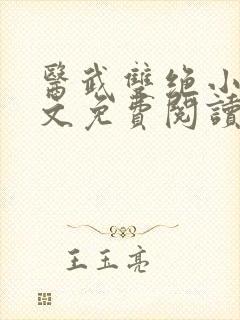 醫武雙絕小
文免費閱讀
王玉亮